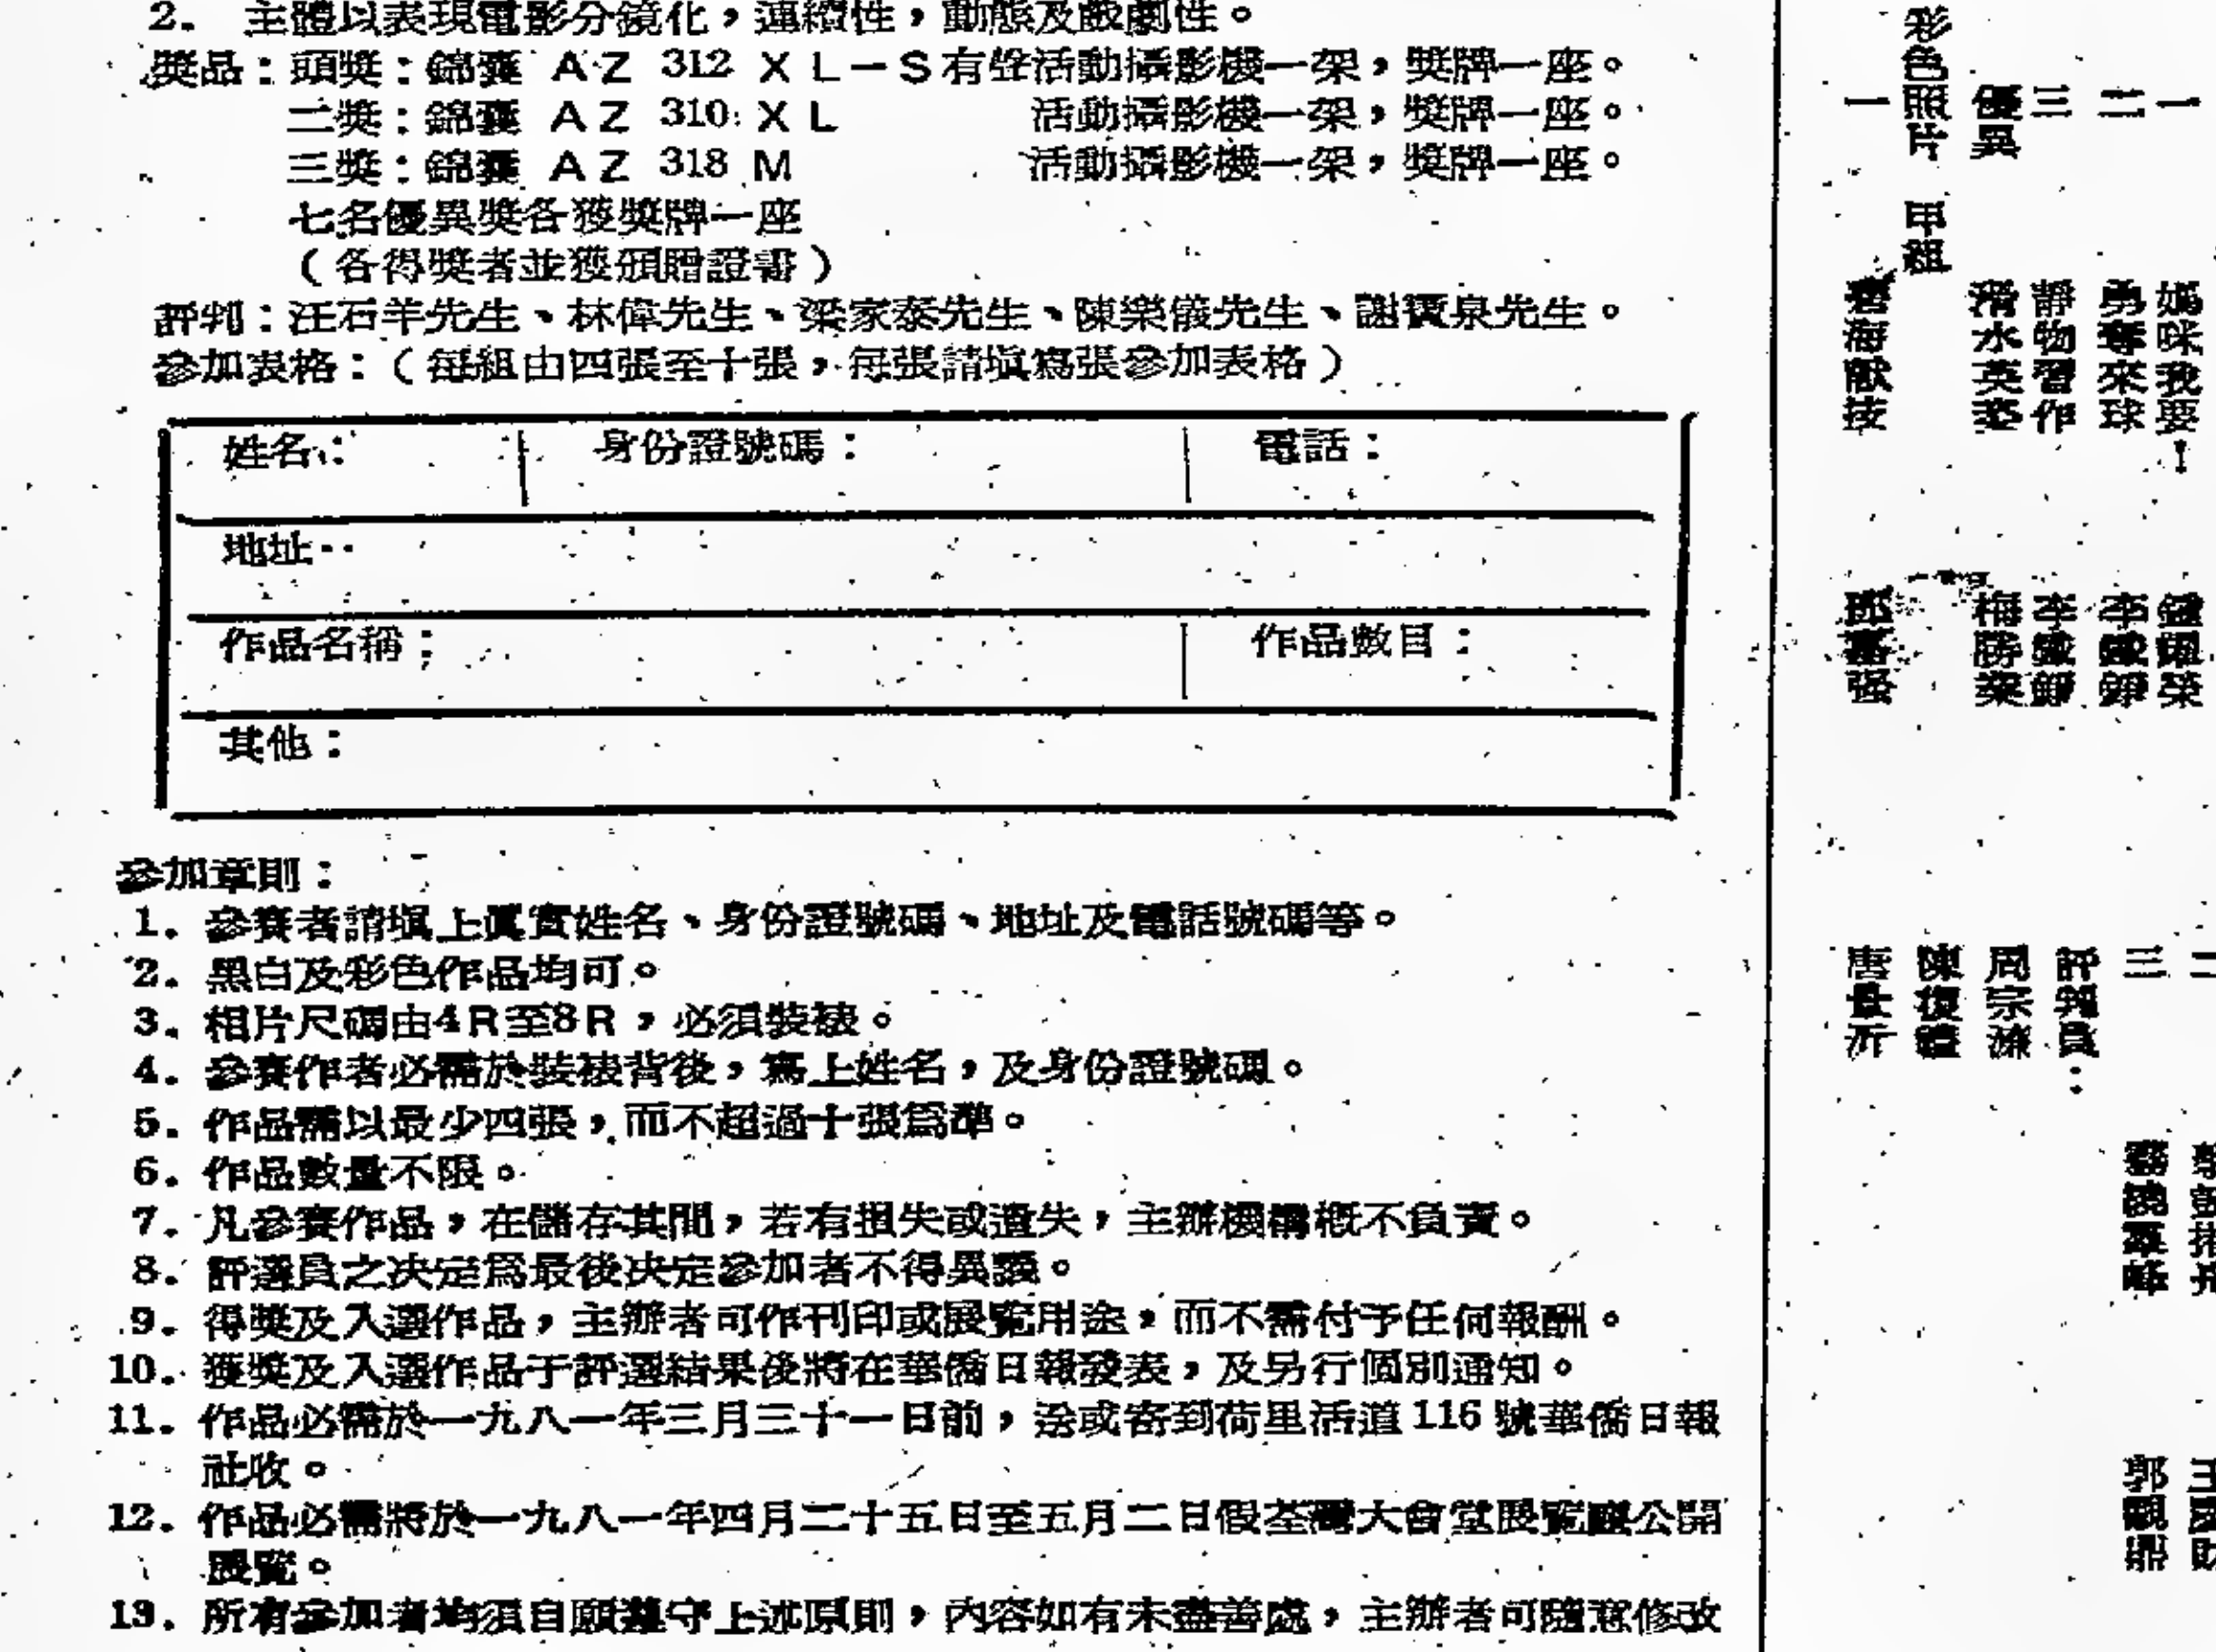 2. 主體以表現電影分鏡化，連續性，動態及戲劇性。
獎品：頭獎：錦囊 AZ 312 XL－S有聲活動攝影機一架，獎牌一座。
二獎：錦囊 AZ 310 XL 活動攝影機一架，獎牌一座。
三獎：錦囊 AZ 318 M 活動攝影機一架，獎牌一座。
七名優異獎各獲獎牌一座
（各得獎者並獲頒贈證書）
評判：汪石羊先生、林偉先生、梁家泰先生、陳樂儀先生、謝寶泉先生。
參加表格：（每組由四張至十張，每張請塡寫張參加表格）
姓名： 身份證號碼： 電話：
地址
作品名稱： 作品數目：
其他：
參加章則：
1. 參賽者請塡上眞實姓名、身份證號碼、地址及電話號碼等。
2. 黑白及彩色作品均可。
3. 相片尺碼由4R至8R，必須裝裱。
4. 參賽作者必需於裝裱背後，寫上姓名，及身份證號碼。
5. 作品需以最少四張，而不超過十張爲準。
6. 作品數量不限。
7. 凡參賽作品，在儲存其間，若有損失或遺失，主辦機構概不負責。
8. 評選員之决定爲最後决定參加者不得異議。
9. 得獎及入選作品，主辦者可作刊印或展覽用途，而不需付予任何報酬。
10. 獲獎及入選作品于評選結果後將在華僑日報發表，及另行個別通知。
11. 作品必需於一九八一年三月三十一日前，送或寄到荷里活道116號華僑日報
社收。
12. 作品必需將於一九八一年四月二十五日至五月二日假荃灣大會堂展覽廳公開
展覽。
13. 所有參加者均須自願遵守上述原則，內容如有未盡善處，主辦者可隨意修改
一 媽咪我要！
二 勇奪來球
三 靜物習作
優異
彩色照片 甲組
一
評判員：
周宗濂
陳復禮
三